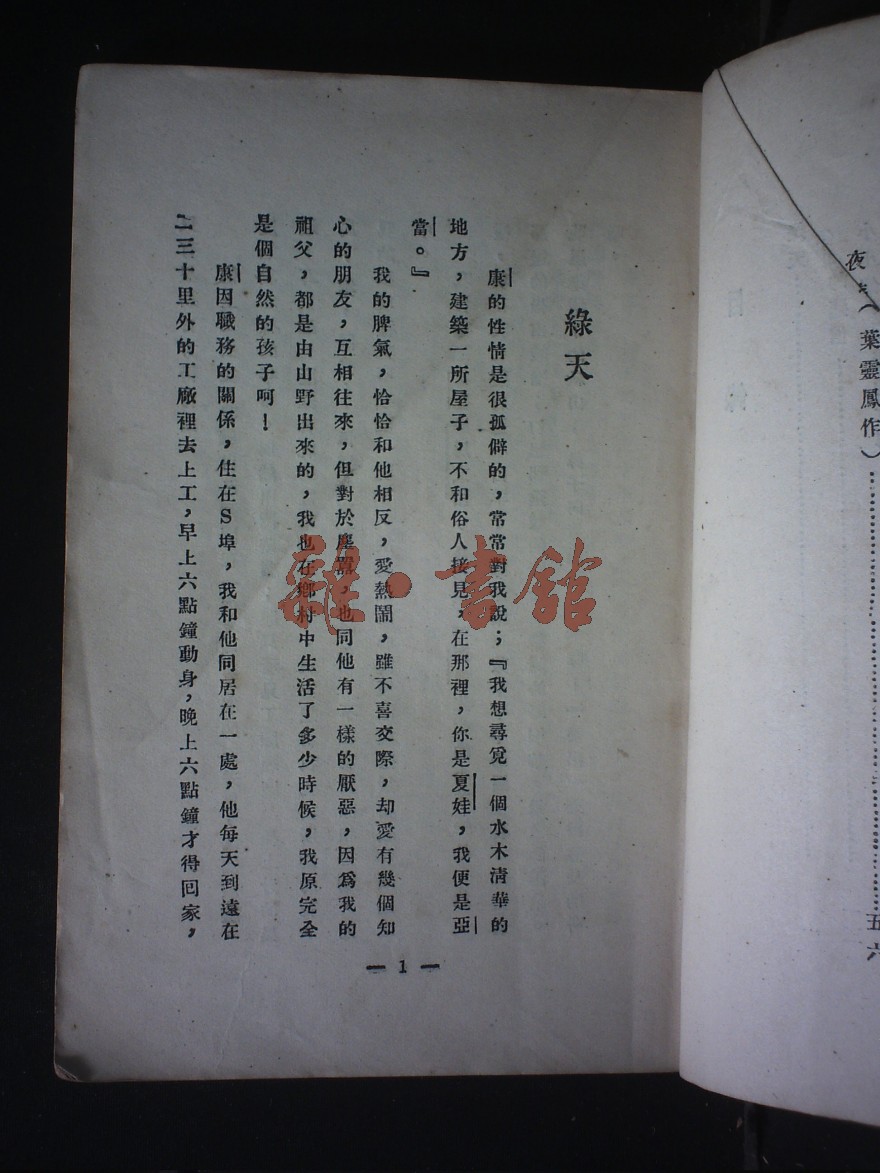 夜 （葉靈鳳作）……五六
綠天
康的性情是很孤僻的，常常對我說；『我想尋覓一個水木清華的
地方，建築一所屋子，不和俗人接見，在那裡，你是夏娃，我便是亞
當。』
我的脾氣，恰恰和他相反，愛熱鬧，雖不喜交際，却愛有幾個知
心的朋友，互相往來，但對於塵囂，也同他有一樣的厭惡，因爲我的
祖父，都是由山野出來的，我也在鄉村中生活了多少時候，我原完全
是個自然的孩子呵！
康因職務的關係，住在S埠，我和他同居在一處，他每天到遠在
二三十里外的工廠裡去上工，早上六點鐘動身，晚上六點鐘才得回家，
— 1 —
雜·書館